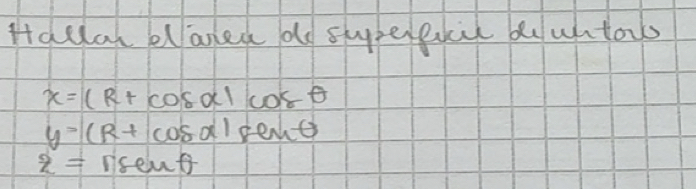 Hallar el área de superficie de un toro
x = (R + cos α) cos θ
y = (R + cos α) sen θ
z = r sen θ